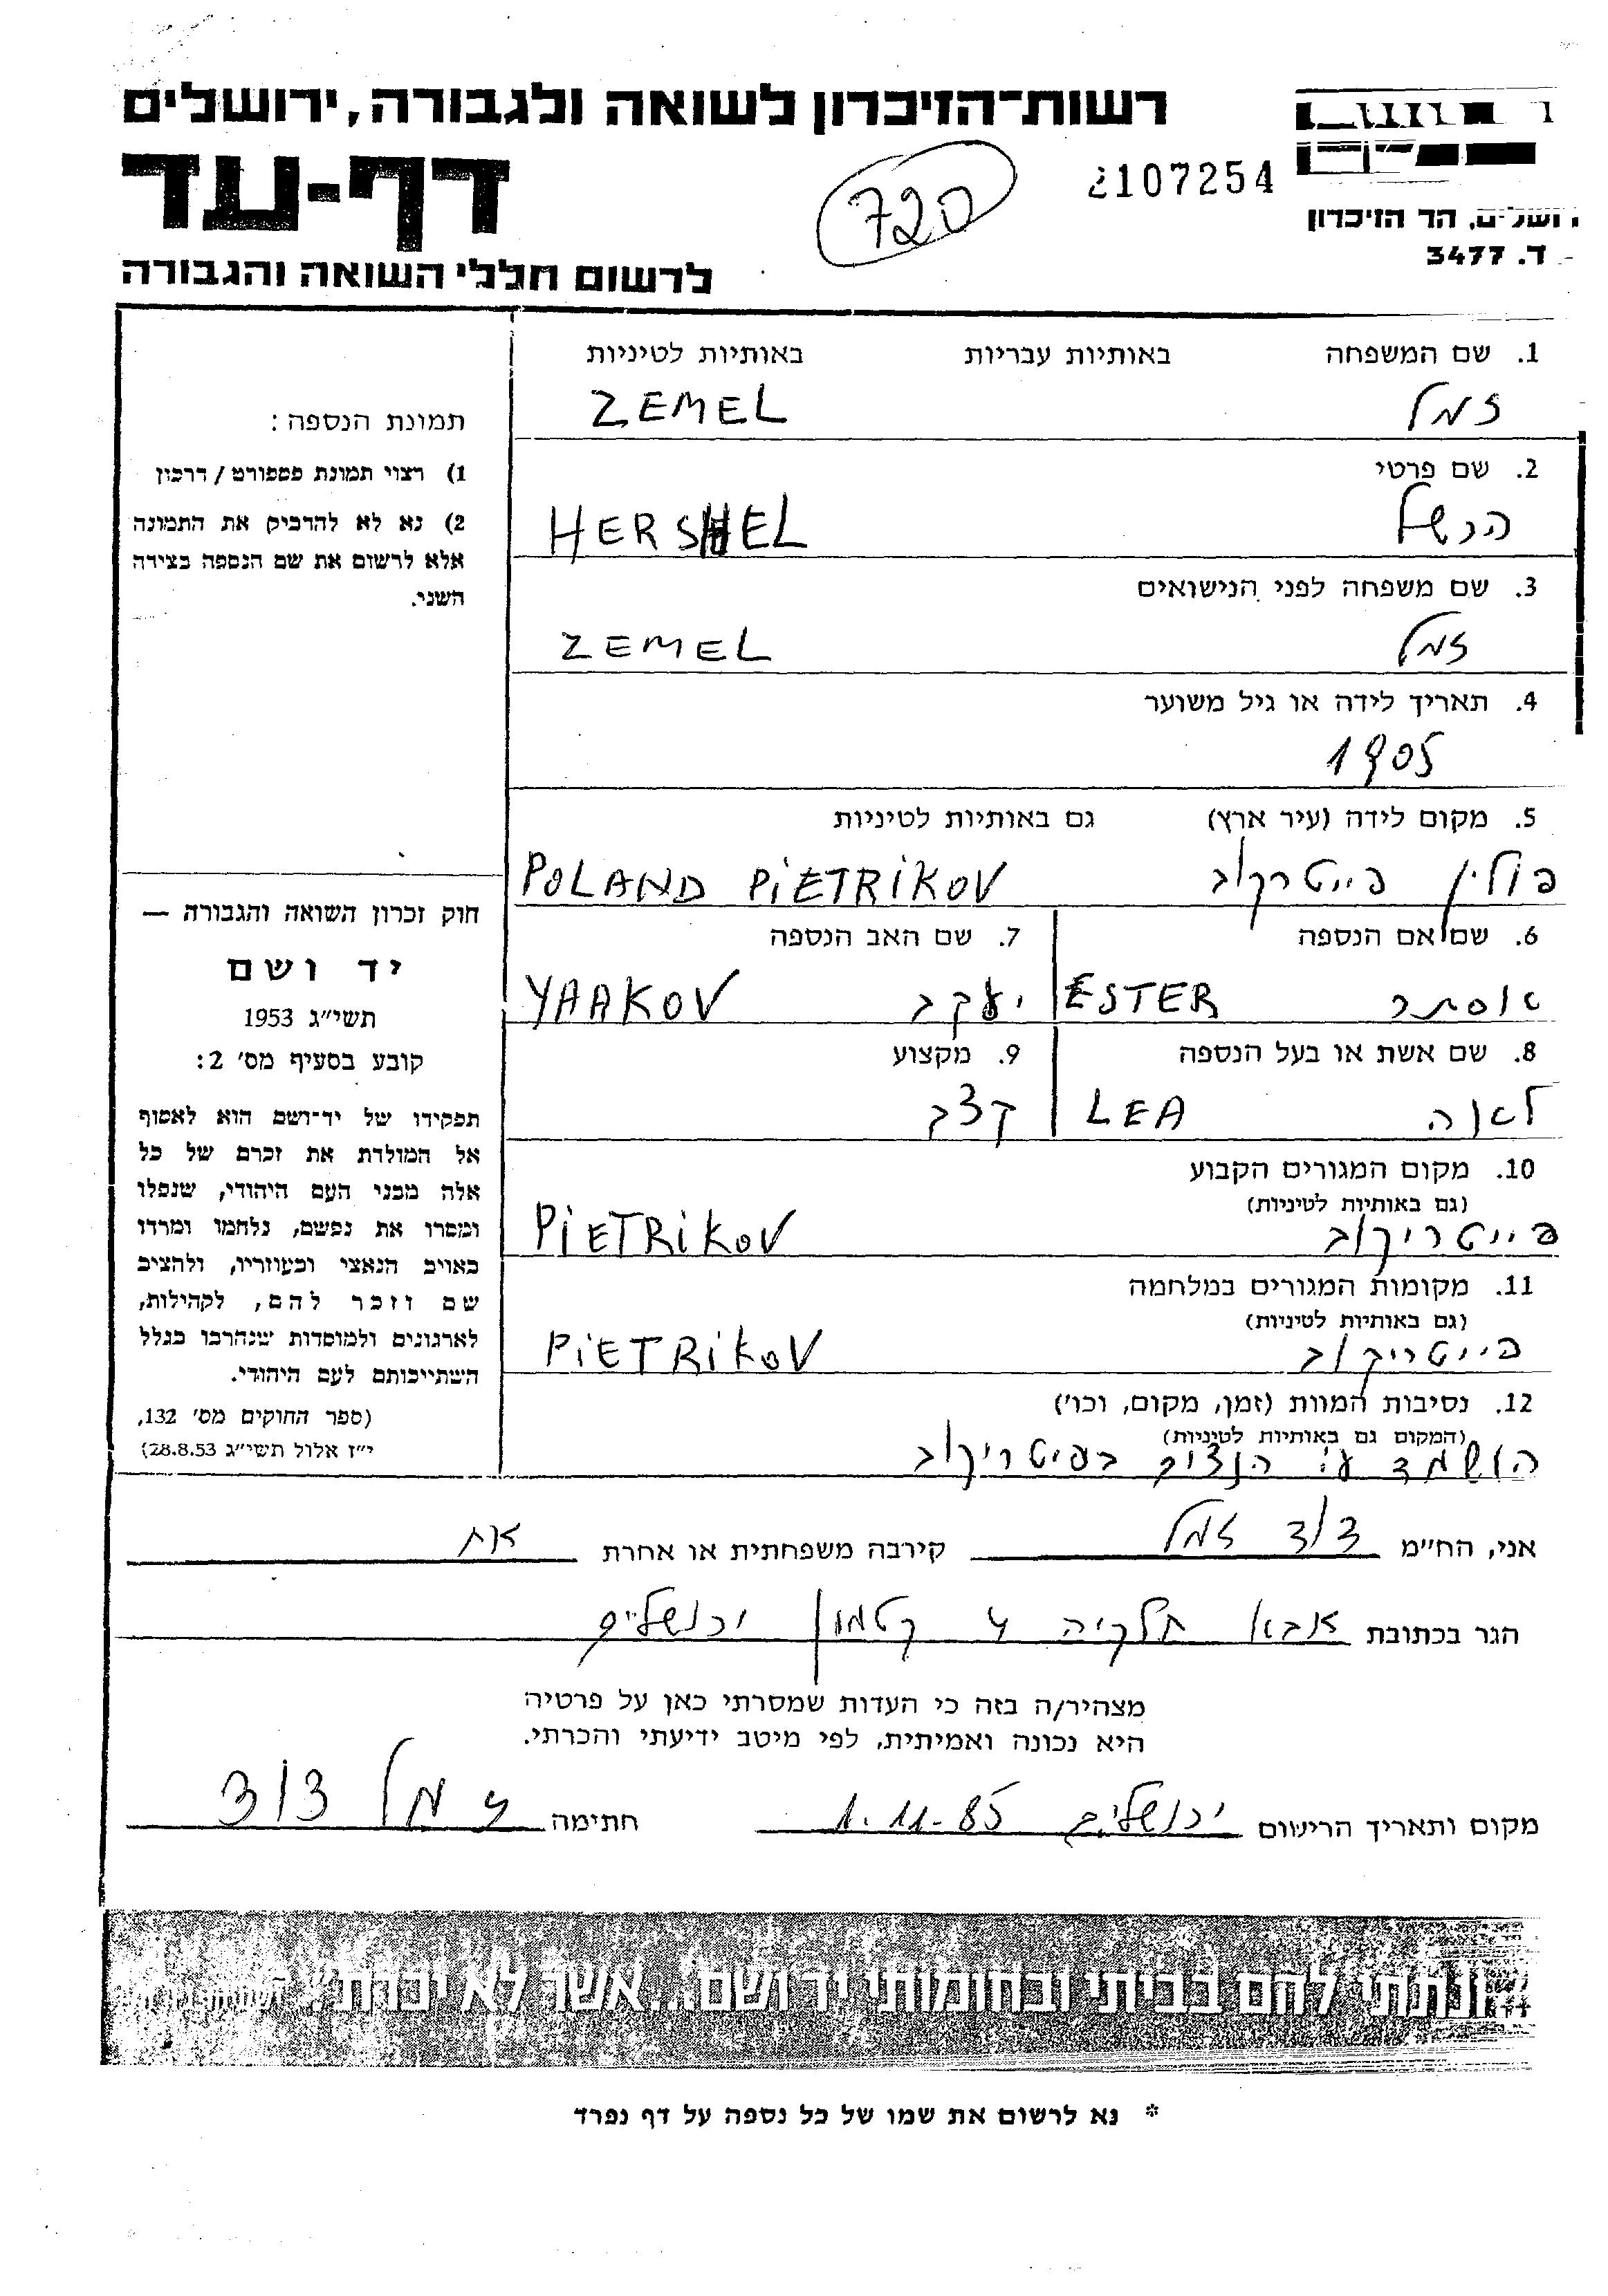 רשות־הזיכרון לשואה ולגבורה, ירושלים
דף-עד
לרשום חללי השואה והגבורה
720
2107254
הר הזיכרון
ד. 3477
1. שם המשפחה באותיות עבריות באותיות לטיניות
זמל ZEMEL
2. שם פרטי
הרשל HERSHEL
3. שם משפחה לפני הנישואים
זמל ZEMEL
4. תאריך לידה או גיל משוער
1905
5. מקום לידה (עיר ארץ) גם באותיות לטיניות
פולין פייטרקוב POLAND PIETRIKOV
6. שם אם הנספה 7. שם האב הנספה
אסתר ESTER יעקב YAAKOV
8. שם אשת או בעל הנספה 9. מקצוע
לאה LEA קצב
10. מקום המגורים הקבוע
(גם באותיות לטיניות)
פייטריקוב PIETRIKOV
11. מקומות המגורים במלחמה
(גם באותיות לטיניות)
פייטריקוב PIETRIKOV
12. נסיבות המוות (זמן, מקום, וכו')
(המקום גם באותיות לטיניות)
הושמד ע"י הנצים בפיטריקוב
תמונת הנספה:
1) רצוי תמונת פספורט / דרכון
2) נא לא להדביק את התמונה
אלא לרשום את שם הנספה בצידה
השני.
חוק זכרון השואה והגבורה —
יד ושם
תשי"ג 1953
קובע בסעיף מס' 2:
תפקידו של יד־ושם הוא לאסוף
אל המולדת את זכרם של כל
אלה מבני העם היהודי, שנפלו
ומסרו את נפשם, נלחמו ומרדו
באויב הנאצי ובעוזריו, ולהציב
שם וזכר להם, לקהילות,
לארגונים ולמוסדות שנחרבו בגלל
השתייכותם לעם היהודי.
(ספר החוקים מס' 132,
י"ז אלול תשי"ג 28.8.53)
אני, הח"מ דוד זמל קירבה משפחתית או אחרת אח
הגר בכתובת אבא חלקיה 4 קטמון ירושלים
מצהיר/ה בזה כי העדות שמסרתי כאן על פרטיה
היא נכונה ואמיתית, לפי מיטב ידיעתי והכרתי.
מקום ותאריך הרישום ירושלים 1.11.85 חתימה זמל דוד
ונתתי להם בביתי ובחומותי יד ושם...אשר לא יכרת"
* נא לרשום את שמו של כל נספה על דף נפרד